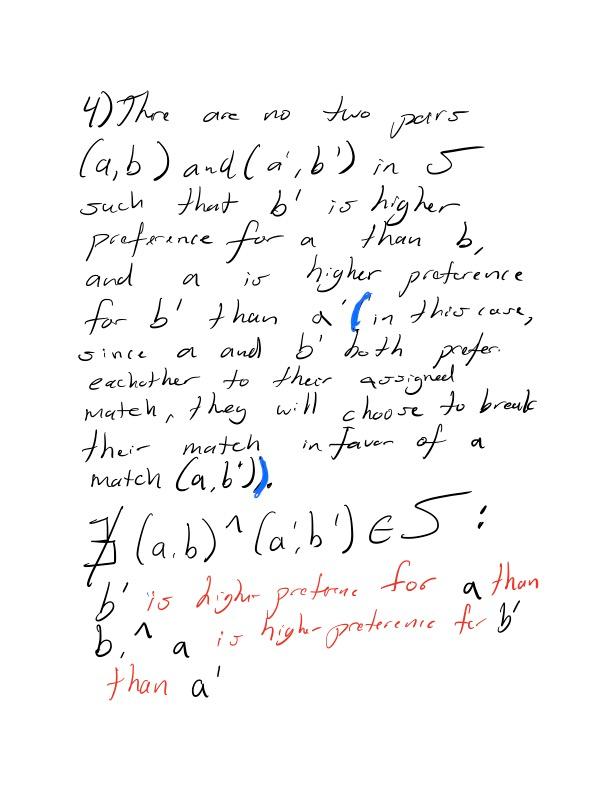 4) There are no two pairs
(a,b) and (a',b') in S
such that b' is higher
preference for a than b,
and a is higher preference
for b' than a' (in this case,
since a and b' both prefer
eachother to their assigned
match, they will choose to break
their match in favor of a
match (a,b')).
∄ (a,b) ^ (a',b') ∈ S :
b' is higher preference for a than
b, ^ a is higher preference for b'
than a'